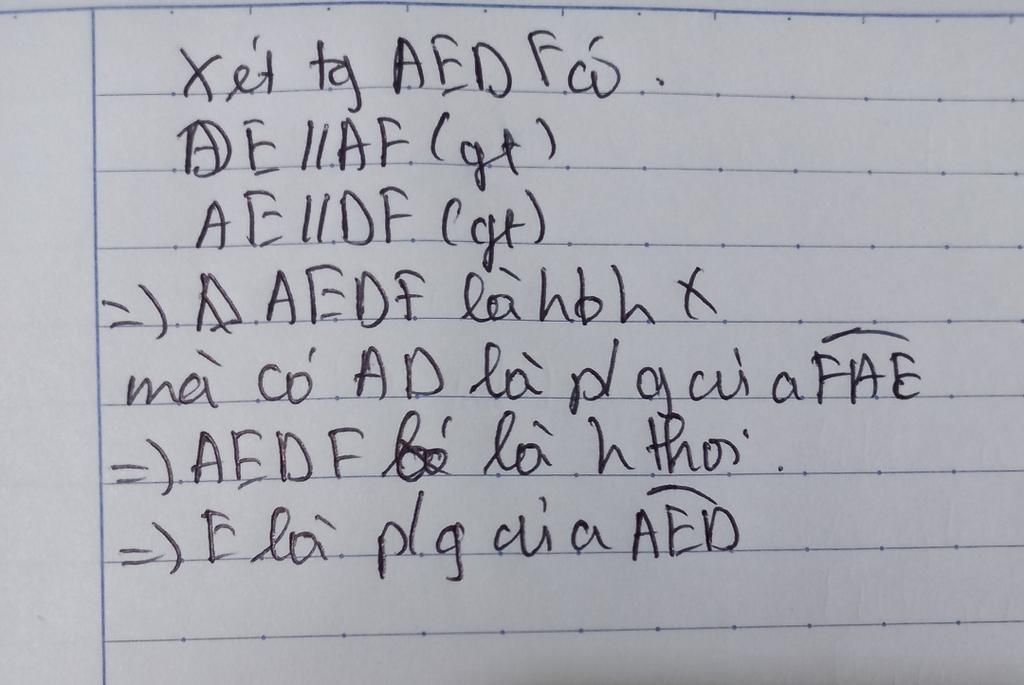 Xét tg AEDF có.
DE // AF (gt)
AE // DF (gt)
=> AEDF là hbh
mà có AD là p/g của FAE
=> AEDF là h thoi.
=> E là p/g của AED